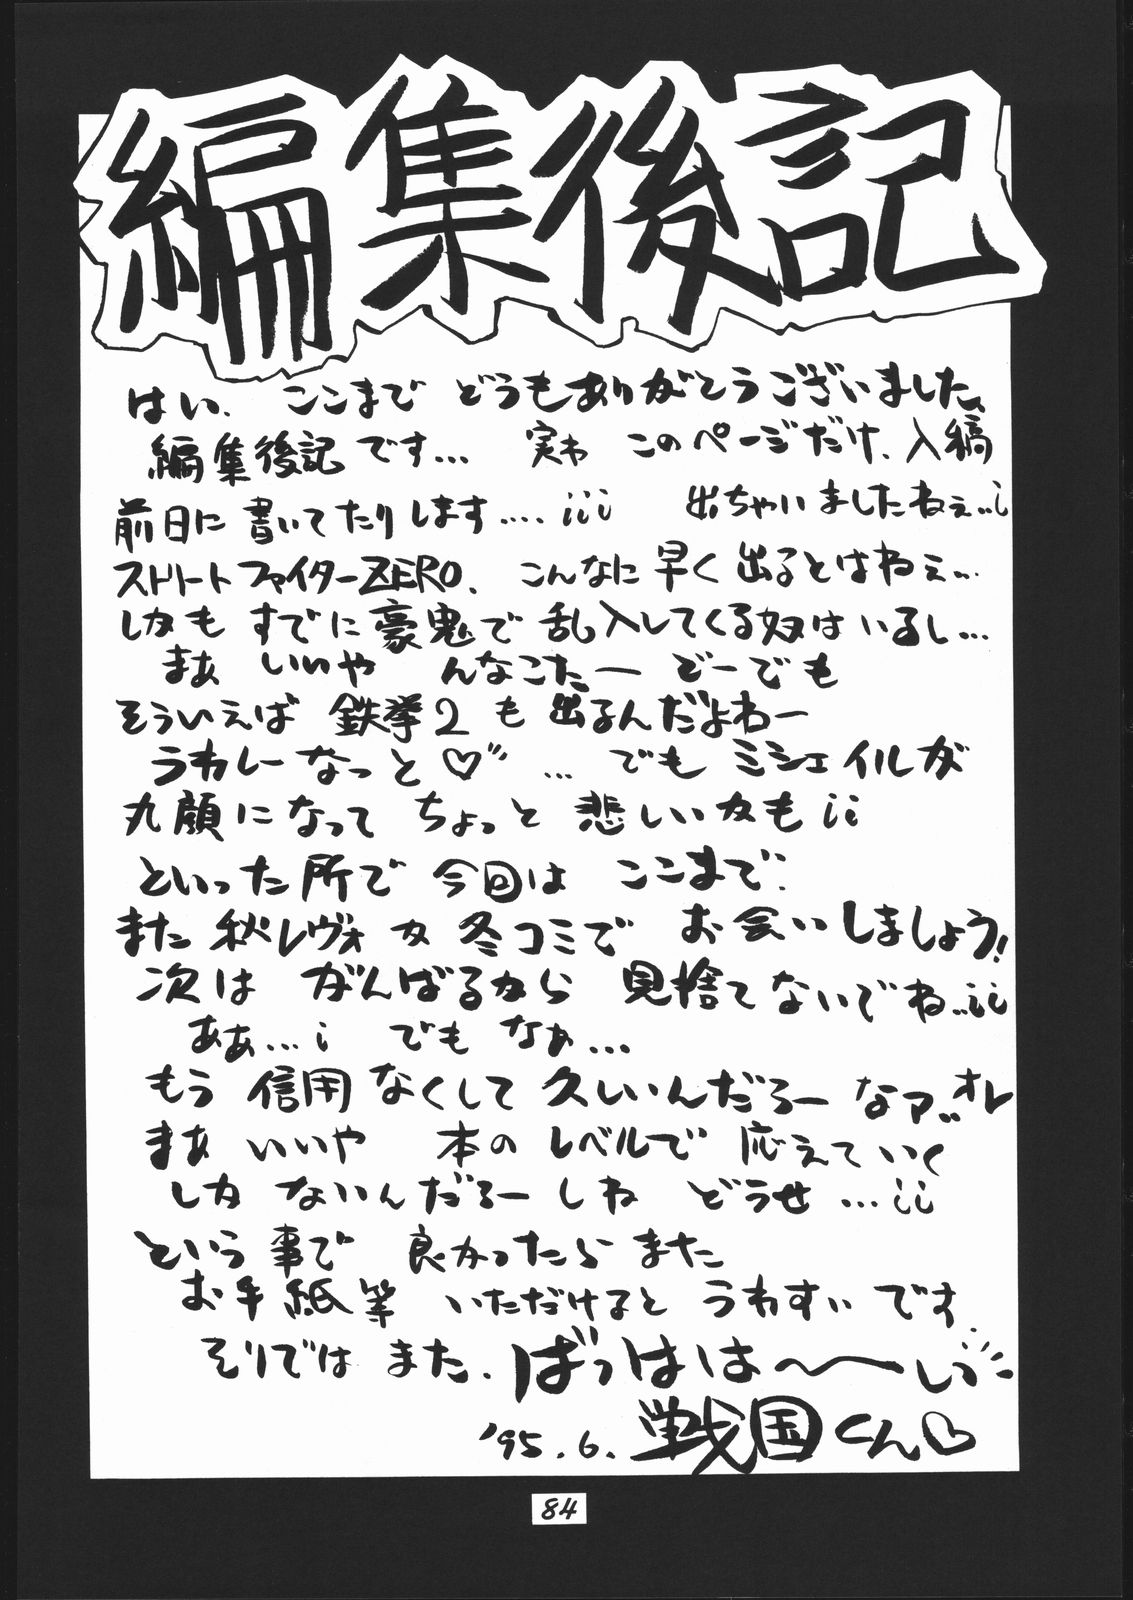 編集後記
はい、ここまで どうもありがとうございました、
編集後記です… 実わ このページだけ、入稿
前日に 書いてたりします….iii 出ちゃいましたねぇ..i
ストリートファイターZERO、こんなに早く出るとはねぇ…
しかも すでに豪鬼で乱入してくる奴はいるし…
まぁ いいや んなこたー どーでも
そういえば 鉄拳2も 出るんだよねー
うれしーなっと♡” … でも ミシェイルが
丸顔になって ちょっと 悲しいかも ii
といった所で 今回は ここまで.
また 秋レヴォか 冬コミで お会いしましょう!
次は がんばるから 見捨てないでね..ii
ああ…i でも なぁ…
もう 信用 なくして 久しいんだろー なァ.. オレ
まぁ いいや 本の レベルで 応えていく
しか ないんだろー しね どうせ …ii
という事で 良かったら また
お手紙等 いただけると うれすぃ です.
そりでは また. ばっはは〜〜い
'95.6. 戦国くん♡
84